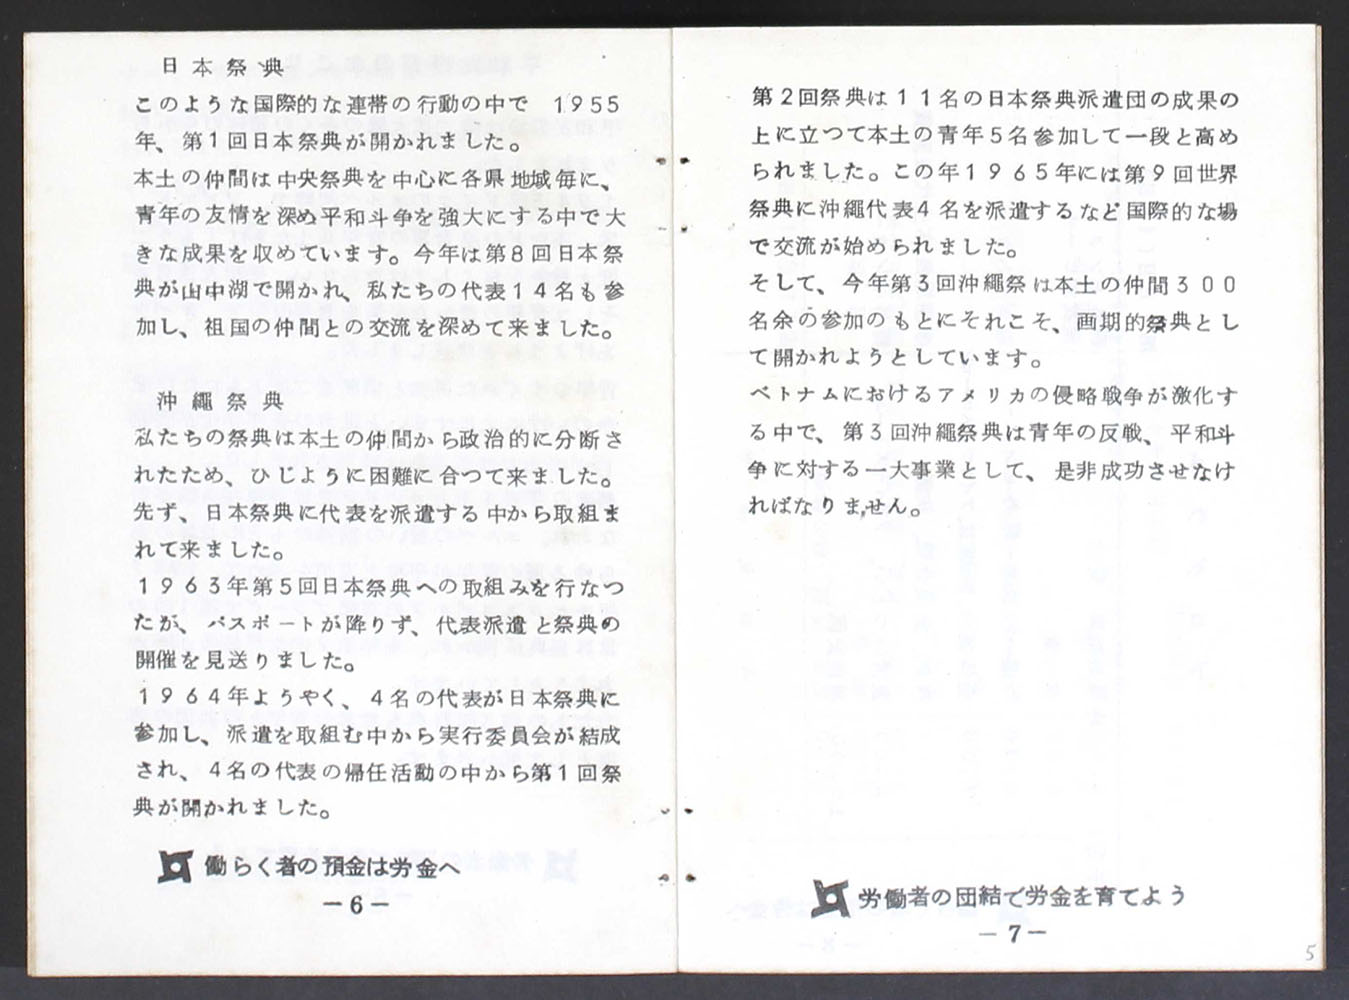 日本祭典
このような国際的な連帯の行動の中で　1955
年、第1回日本祭典が開かれました。
本土の仲間は中央祭典を中心に各県地域毎に、
青年の友情を深め平和斗争を強大にする中で大
きな成果を収めています。今年は第8回日本祭
典が山中湖で開かれ、私たちの代表14名も参
加し、祖国の仲間との交流を深めて来ました。
沖縄祭典
私たちの祭典は本土の仲間から政治的に分断さ
れたため、ひじように困難に合つて来ました。
先ず、日本祭典に代表を派遣する中から取組ま
れて来ました。
1963年第5回日本祭典への取組みを行なつ
たが、パスポートが降りず、代表派遣と祭典の
開催を見送りました。
1964年ようやく、4名の代表が日本祭典に
参加し、派遣を取組む中から実行委員会が結成
され、4名の代表の帰任活動の中から第1回祭
典が開かれました。
働らく者の預金は労金へ
－6－
第2回祭典は11名の日本祭典派遣団の成果の
上に立つて本土の青年5名参加して一段と高め
られました。この年1965年には第9回世界
祭典に沖縄代表4名を派遣するなど国際的な場
で交流が始められました。
そして、今年第3回沖縄祭は本土の仲間300
名余の参加のもとにそれこそ、画期的祭典とし
て開かれようとしています。
ベトナムにおけるアメリカの侵略戦争が激化す
る中で、第3回沖縄祭典は青年の反戦、平和斗
争に対する一大事業として、是非成功させなけ
ればなりません。
労働者の団結で労金を育てよう
－7－
5